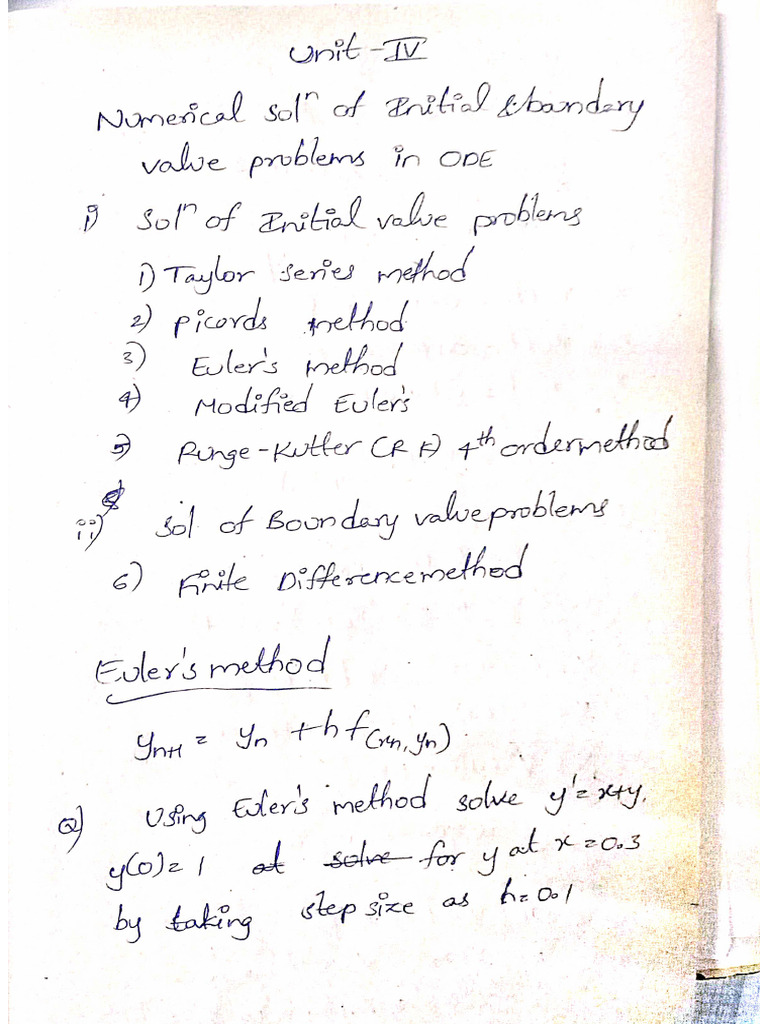 Unit - IV
Numerical solⁿ of Initial & boundary
value problems in ODE
i) Solⁿ of Initial value problems
1) Taylor series method
2) picords method
3) Euler's method
4) Modified Euler's
5) Runge-Kutter (R K) 4th order method
ii) Sol of Boundary value problems
6) Finite Difference method
Euler's method
yₙ₊₁ = yₙ + h f(xₙ, yₙ)
Q) Using Euler's method solve y' = x+y,
y(0) = 1 at solve for y at x = 0.3
by taking step size as h = 0.1